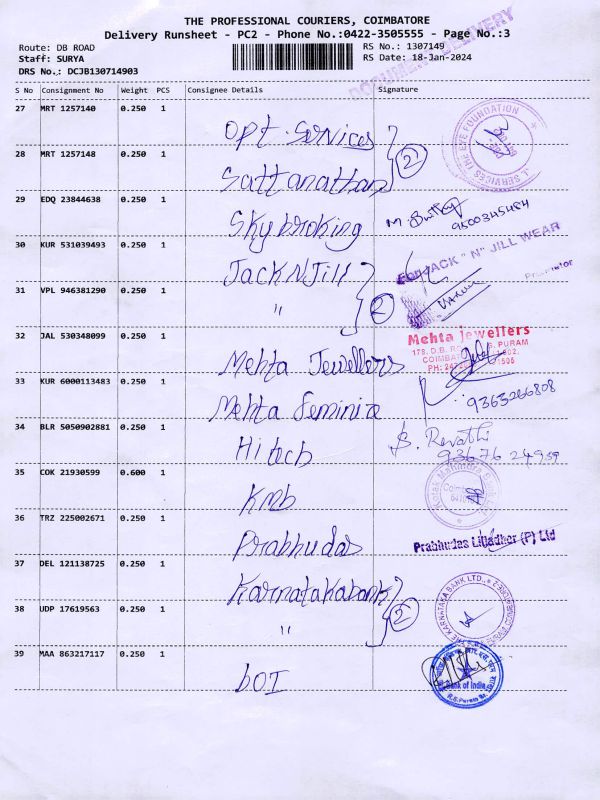 THE PROFESSIONAL COURIERS, COIMBATORE
Delivery Runsheet - PC2 - Phone No.:0422-3505555 - Page No.:3
Route: DB ROAD
Staff: SURYA
DRS No.: DCJB130714903
RS No.: 1307149
RS Date: 18-Jan-2024
S No Consignment No Weight PCS Consignee Details Signature
27 MRT 1257140 0.250 1 Opt. Services
28 MRT 1257148 0.250 1 Sattanathan 2
29 EDQ 23844638 0.250 1 Sky broking 9500345484
30 KUR 531039493 0.250 1 Jack N Jill JACK " N" JILL WEAR
Proprietor
31 VPL 946381290 0.250 1 " 2
32 JAL 530348099 0.250 1 Mehta Jewellers Mehta Jewellers
33 KUR 6000113483 0.250 1 Mehta Feminine 9363266808
34 BLR 5050902881 0.250 1 Hitech B. Revathi
93676 24959
35 COK 21930599 0.600 1 KMB
36 TRZ 225002671 0.250 1 Prabhudas Prabhudas Liladher (P) Ltd
37 DEL 121138725 0.250 1 Karnatakabank
38 UDP 17619563 0.250 1 " 2 KARNATAKA BANK LTD.
39 MAA 863217117 0.250 1 BOI Bank of India